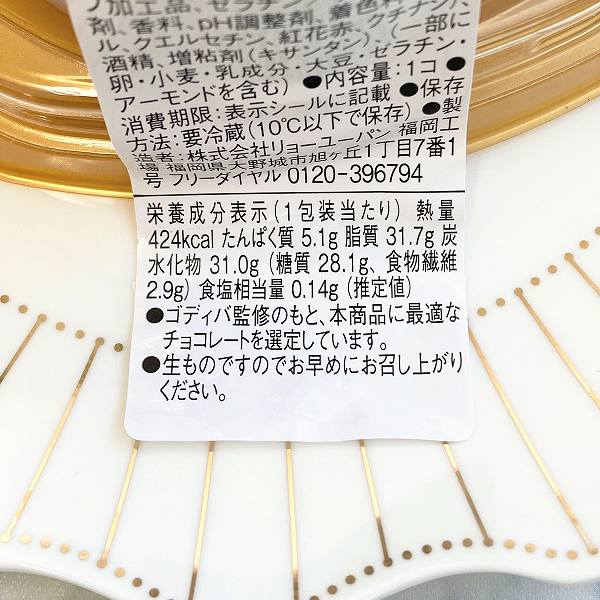 ノ加工品、ゼラチン
剤、香料、pH調整剤、着色料 クチナシ
ル、クエルセチン、紅花赤、
酒精、増粘剤(キサンタン)、(一部に
卵・小麦・乳成分・大豆・ゼラチン・
アーモンドを含む) ●内容量:1コ ●
消費期限:表示シールに記載 ●保存
方法:要冷蔵(10℃以下で保存) ●製
造者:株式会社リョーユーパン 福岡工
場 福岡県大野城市旭ヶ丘1丁目7番1
号 フリーダイヤル 0120-396794
栄養成分表示(1包装当たり) 熱量
424kcal たんぱく質 5.1g 脂質 31.7g 炭
水化物 31.0g (糖質 28.1g、食物繊維
2.9g) 食塩相当量 0.14g (推定値)
●ゴディバ監修のもと、本商品に最適な
チョコレートを選定しています。
●生ものですのでお早めにお召し上がり
ください。